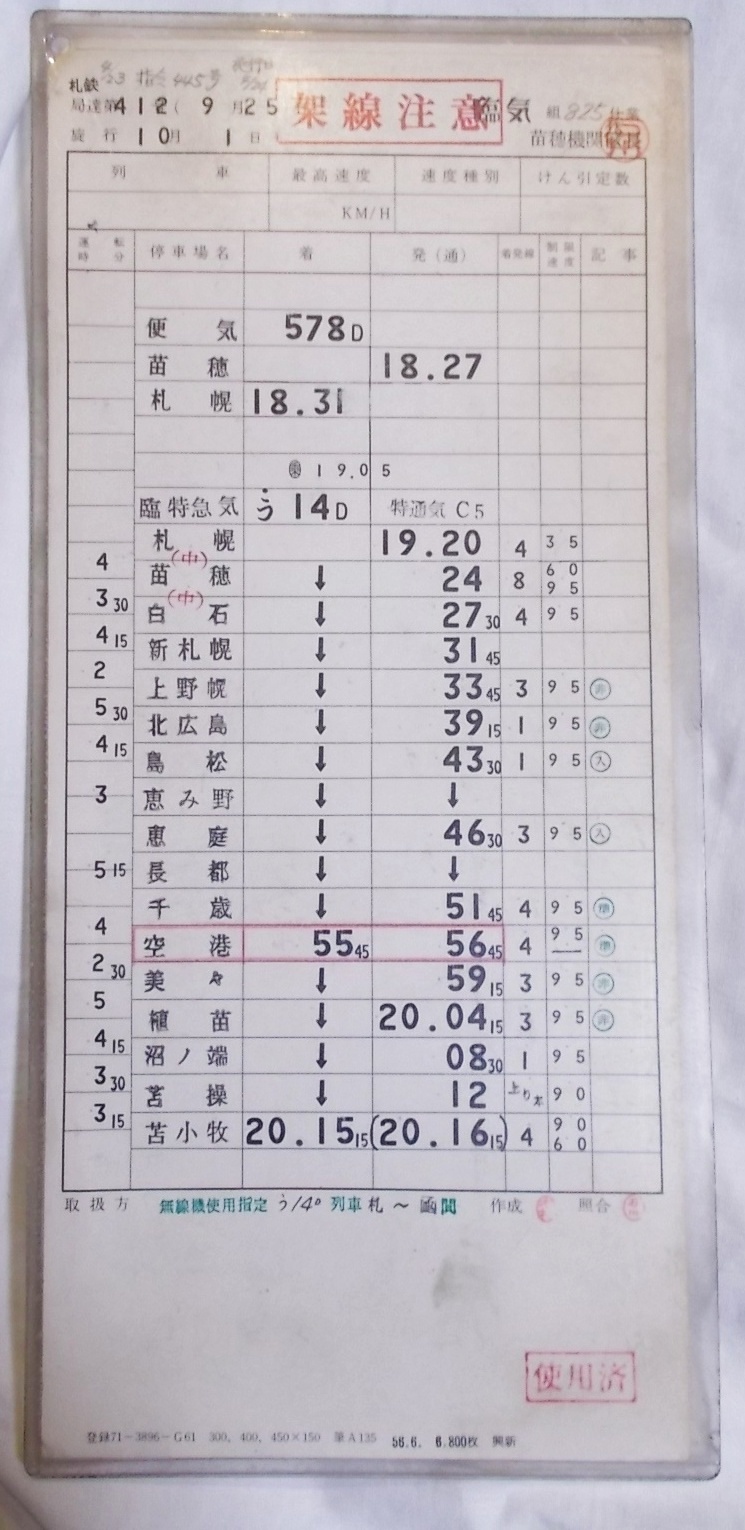 札鉄 4/23 指令445号
局達第412( 9月25 架線注意 臨気 組825仕業
施行 10月 1日 苗穂機関区長
列車 最高速度 速度種別 けん引定数
KM/H
運転時分 停車場名 着 発(通) 着発線 制限速度 記事
便気 578D
苗穂 18.27
札幌 18.31
乗 19.05
臨特急気 う14D 特通気 C5
札幌 19.20 4 35
4 (中)
苗穂 ↓ 24 8 60 95
3 30 (中)
白石 ↓ 27 30 4 95
4 15
新札幌 ↓ 31 45
2
上野幌 ↓ 33 45 3 95 非
5 30
北広島 ↓ 39 15 1 95 非
4 15
島松 ↓ 43 30 1 95 入
3
恵み野 ↓ ↓
恵庭 ↓ 46 30 3 95 入
5 15
長都 ↓ ↓
千歳 ↓ 51 45 4 95
4
空港 55 45 56 45 4 95 —
2 30
美々 ↓ 59 15 3 95 非
5
植苗 ↓ 20.04 15 3 95 非
4 15
沼ノ端 ↓ 08 30 1 95
3 30
苫操 ↓ 12 上り本 90
3 15
苫小牧 20.15 15 (20.16 15) 4 90 60
取扱方 無線機使用指定 う14D 列車 札〜函間 作成 照合
使用済
登録71-3896-G61 300, 400, 450×150 筆A135 56.6. 6,800枚 興新